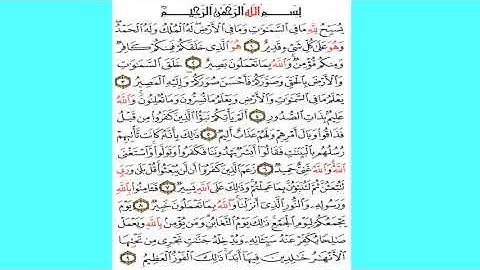 بِسْمِ اللَّهِ الرَّحْمَٰنِ الرَّحِيمِ
يُسَبِّحُ لِلَّهِ مَا فِي السَّمَٰوَٰتِ وَمَا فِي الْأَرْضِ لَهُ الْمُلْكُ وَلَهُ الْحَمْدُ
وَهُوَ عَلَىٰ كُلِّ شَيْءٍ قَدِيرٌ ١ هُوَ الَّذِي خَلَقَكُمْ فَمِنكُمْ كَافِرٌ
وَمِنكُم مُّؤْمِنٌ وَاللَّهُ بِمَا تَعْمَلُونَ بَصِيرٌ ٢ خَلَقَ السَّمَٰوَٰتِ
وَالْأَرْضَ بِالْحَقِّ وَصَوَّرَكُمْ فَأَحْسَنَ صُوَرَكُمْ وَإِلَيْهِ الْمَصِيرُ ٣
يَعْلَمُ مَا فِي السَّمَٰوَٰتِ وَالْأَرْضِ وَيَعْلَمُ مَا تُسِرُّونَ وَمَا تُعْلِنُونَ وَاللَّهُ
عَلِيمٌ بِذَاتِ الصُّدُورِ ٤ أَلَمْ يَأْتِكُمْ نَبَؤُا الَّذِينَ كَفَرُوا مِن قَبْلُ
فَذَاقُوا وَبَالَ أَمْرِهِمْ وَلَهُمْ عَذَابٌ أَلِيمٌ ٥ ذَٰلِكَ بِأَنَّهُ كَانَت تَّأْتِيهِمْ
رُسُلُهُم بِالْبَيِّنَٰتِ فَقَالُوا أَبَشَرٌ يَهْدُونَنَا فَكَفَرُوا وَتَوَلَّوا وَّاسْتَغْنَى
اللَّهُ وَاللَّهُ غَنِيٌّ حَمِيدٌ ٦ زَعَمَ الَّذِينَ كَفَرُوا أَن لَّن يُبْعَثُوا قُلْ بَلَىٰ وَرَبِّي
لَتُبْعَثُنَّ ثُمَّ لَتُنَبَّؤُنَّ بِمَا عَمِلْتُمْ وَذَٰلِكَ عَلَى اللَّهِ يَسِيرٌ ٧ فَـَٔامِنُوا بِاللَّهِ
وَرَسُولِهِ وَالنُّورِ الَّذِي أَنزَلْنَا وَاللَّهُ بِمَا تَعْمَلُونَ خَبِيرٌ ٨ يَوْمَ
يَجْمَعُكُمْ لِيَوْمِ الْجَمْعِ ذَٰلِكَ يَوْمُ التَّغَابُنِ وَمَن يُؤْمِن بِاللَّهِ وَيَعْمَلْ
صَالِحًا يُكَفِّرْ عَنْهُ سَيِّـَٔاتِهِ وَيُدْخِلْهُ جَنَّٰتٍ تَجْرِي مِن تَحْتِهَا
الْأَنْهَٰرُ خَٰلِدِينَ فِيهَا أَبَدًا ذَٰلِكَ الْفَوْزُ الْعَظِيمُ ٩